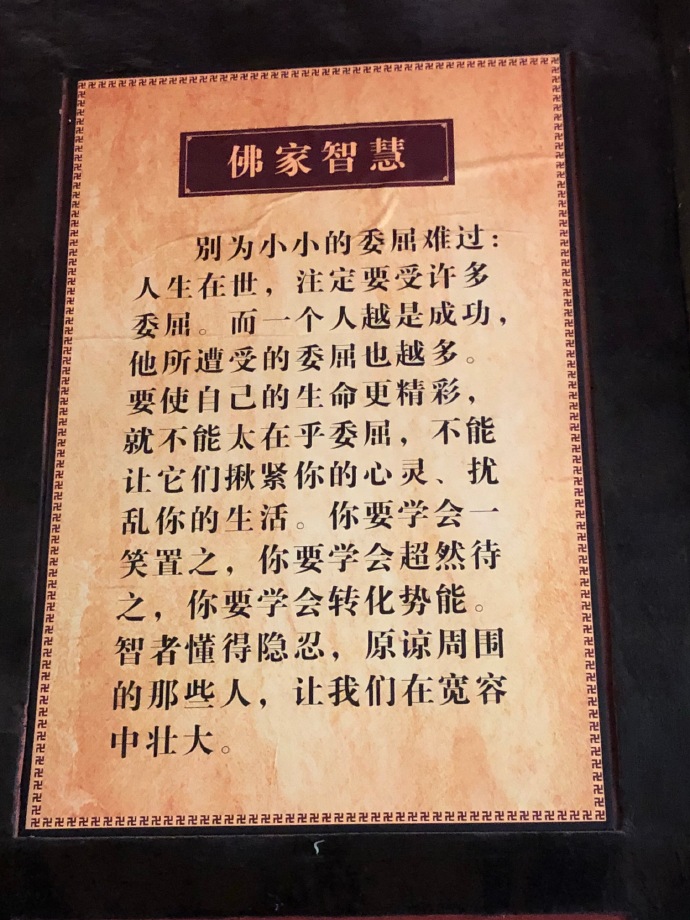 佛家智慧
别为小小的委屈难过：
人生在世，注定要受许多
委屈。而一个人越是成功，
他所遭受的委屈也越多。
要使自己的生命更精彩，
就不能太在乎委屈，不能
让它们揪紧你的心灵、扰
乱你的生活。你要学会一
笑置之，你要学会超然待
之，你要学会转化势能。
智者懂得隐忍，原谅周围
的那些人，让我们在宽容
中壮大。